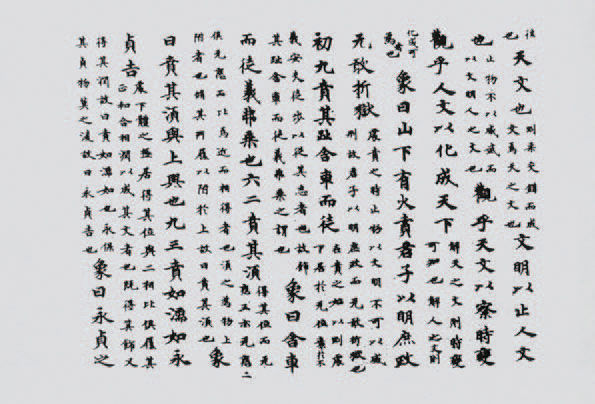 往也天文也剛柔交錯而成文焉天之文也文明以止人文
也止物不以威武而以文明人之文也觀乎天文以察時變
觀乎人文以化成天下解天之文則時變可知也解人之文則
化成可為也象曰山下有火賁君子以明庶政
无敢折獄處賁之時止物以文明不可以威刑故君子以明庶政而无敢折獄也
初九賁其趾舍車而徒在賁之始以剛處下居於无位棄於不
義安夫徒步以從其志者也故飾其趾舍車而徒義弗乘之謂也象曰舍車
而徒義弗乘也六二賁其須得其位而无應三亦无應二
俱无應而比焉近而相得者也須之為物上附者也循其所履以附於上故曰賁其須也象
曰賁其須與上興也九三賁如濡如永
貞吉處下體之極居得其位與二相比俱履其正和合相潤以成其文者也既得其飾又
得其潤故曰賁如濡如也永保其貞物莫之陵故曰永貞吉也象曰永貞之